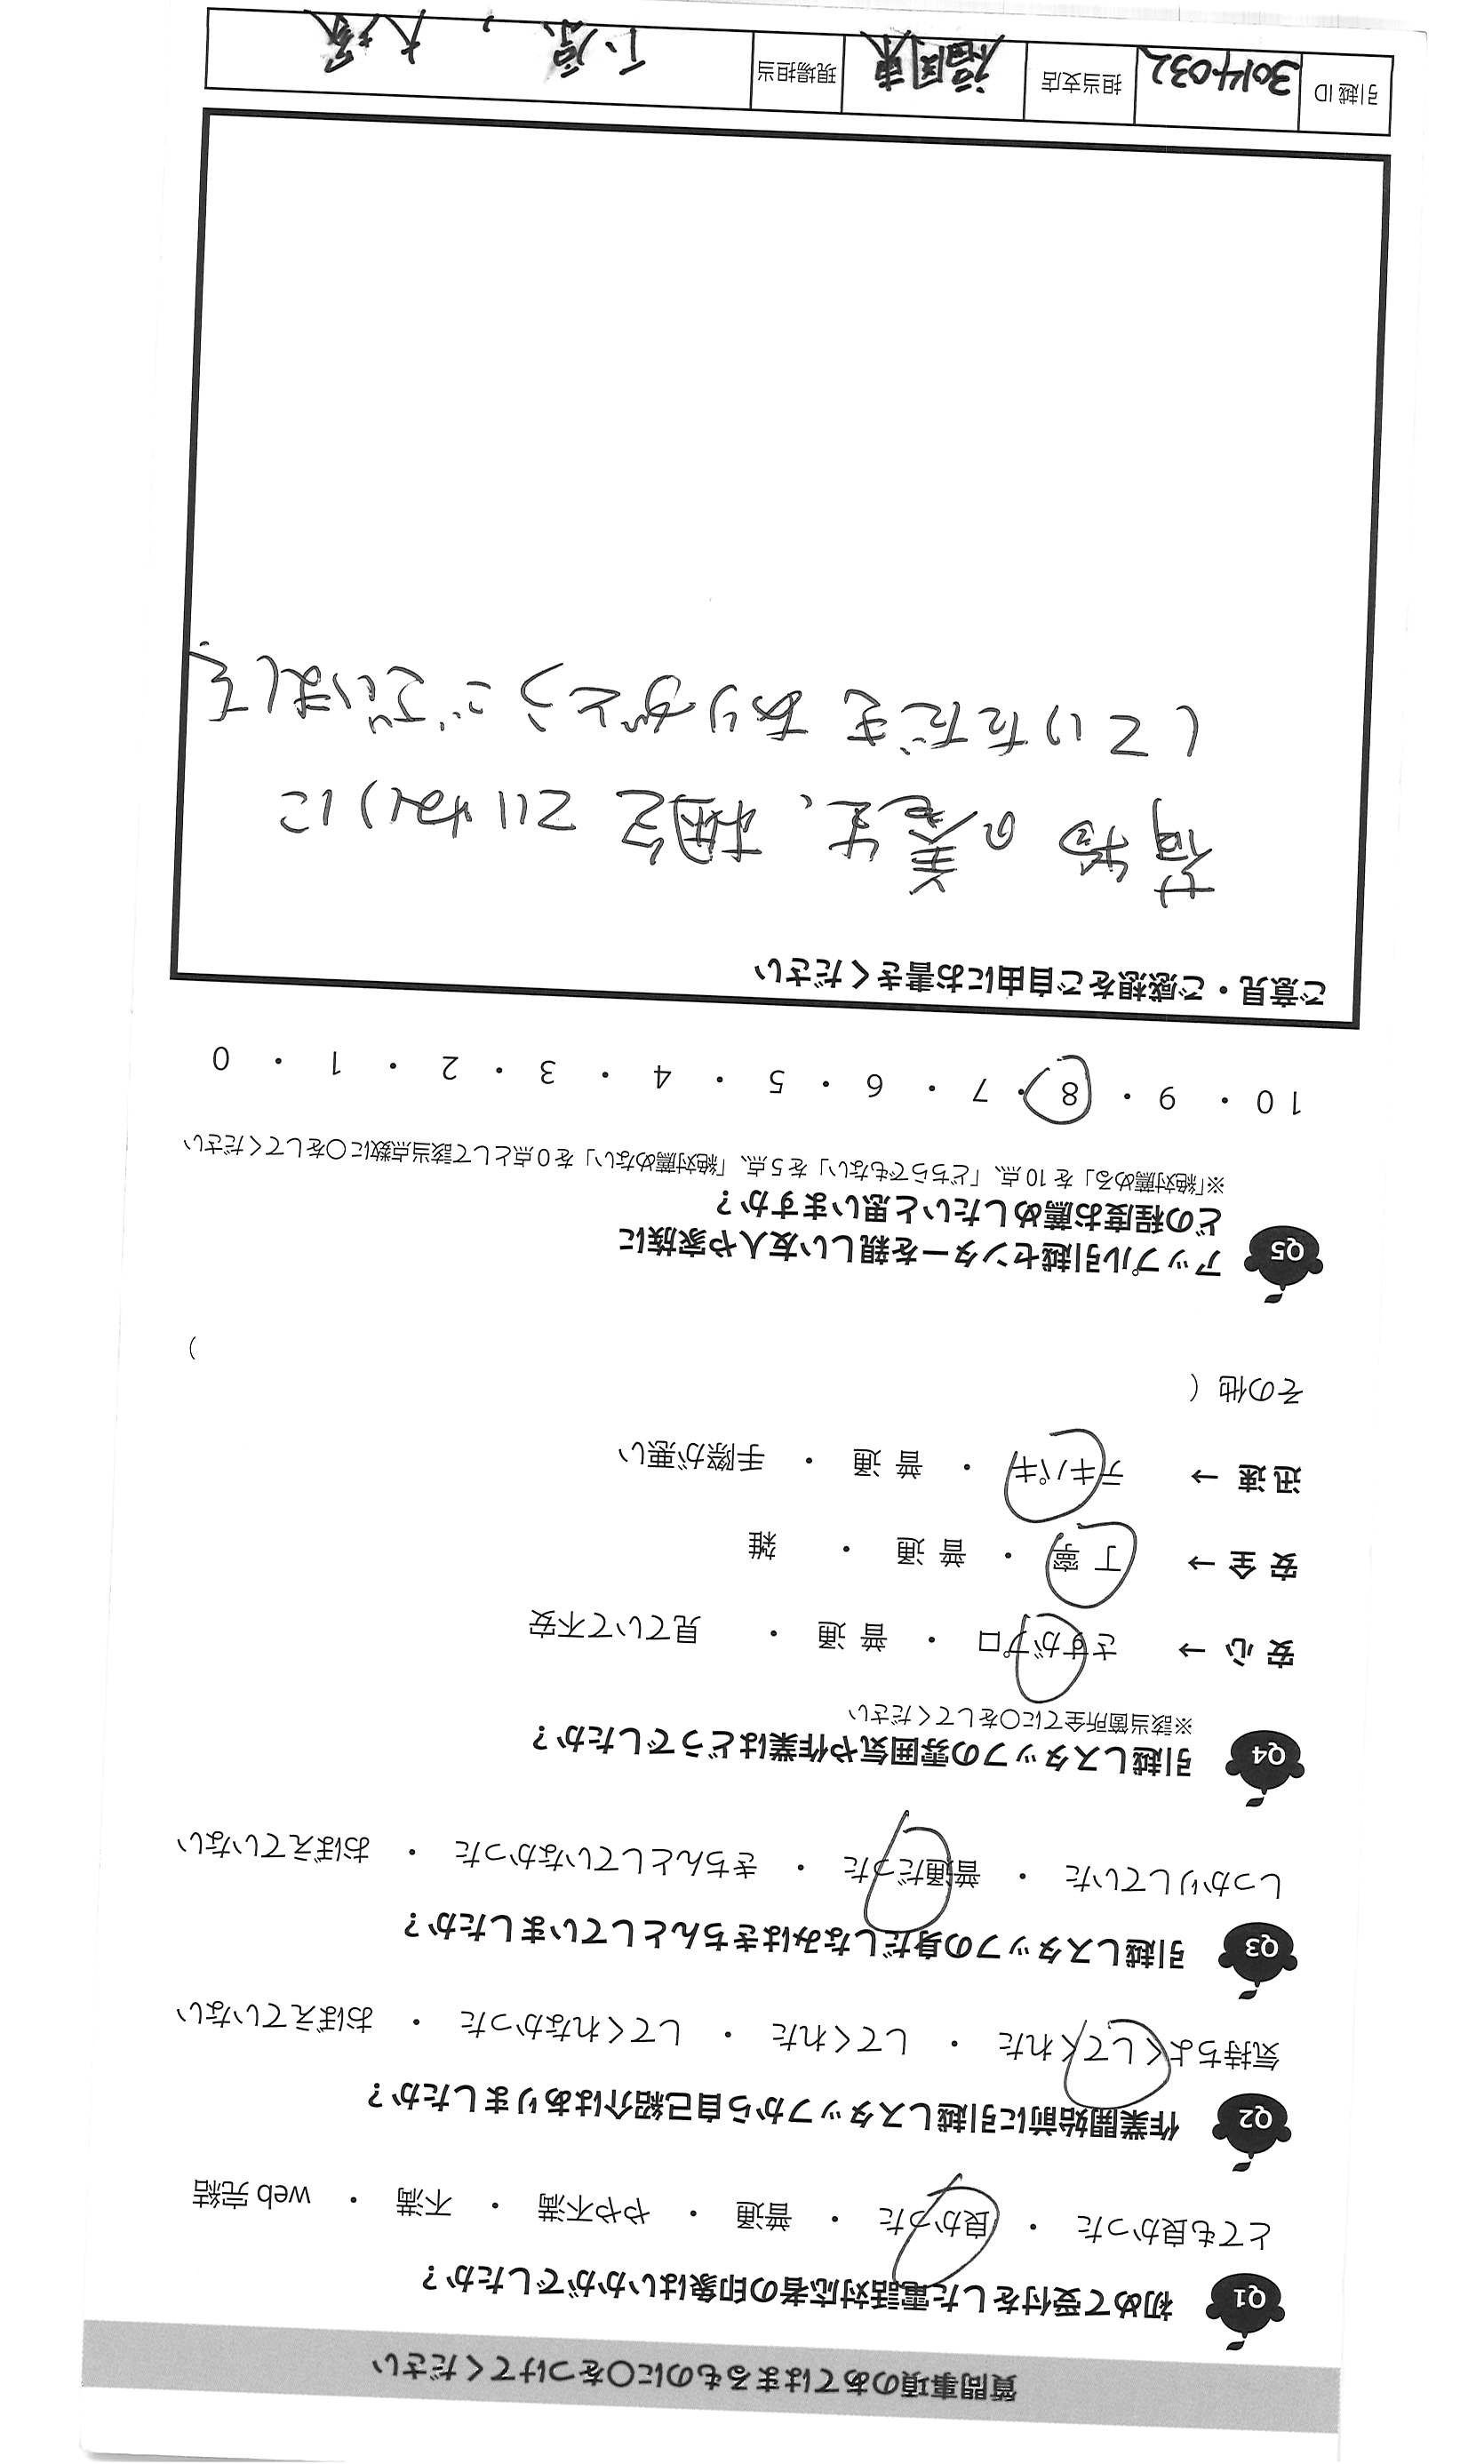 質問事項のあてはまるものに○をつけてください
Q1 初めて受付をした電話対応者の印象はいかがでしたか？
とても良かった ・ 良かった ・ 普通 ・ やや不満 ・ 不満 ・ web 完結
Q2 作業開始前に引越しスタッフから自己紹介はありましたか？
気持ちよくしてくれた ・ してくれた ・ してくれなかった ・ おぼえていない
Q3 引越しスタッフの身だしなみはきちんとしていましたか？
しっかりしていた ・ 普通だった ・ きちんとしていなかった ・ おぼえていない
Q4 引越しスタッフの雰囲気や作業はどうでしたか？
※該当箇所全てに○をしてください
安 心 → さすがプロ ・ 普 通 ・ 見ていて不安
安 全 → 丁 寧 ・ 普 通 ・ 雑
迅 速 → テキパキ ・ 普 通 ・ 手際が悪い
その他（ ）
Q5 アップル引越センターを親しい友人や家族に
どの程度お薦めしたいと思いますか？
※「絶対薦める」を 10 点、「どちらでもない」を 5 点、「絶対薦めない」を 0 点として該当点数に○をしてください
10 ・ 9 ・ 8 ・ 7 ・ 6 ・ 5 ・ 4 ・ 3 ・ 2 ・ 1 ・ 0
ご意見・ご感想をご自由にお書きください
荷物の養生、梱包ていねいに
していただきありがとうございまして
引越 ID 3014032 担当支店 福岡東 現場担当 下原 、大塚